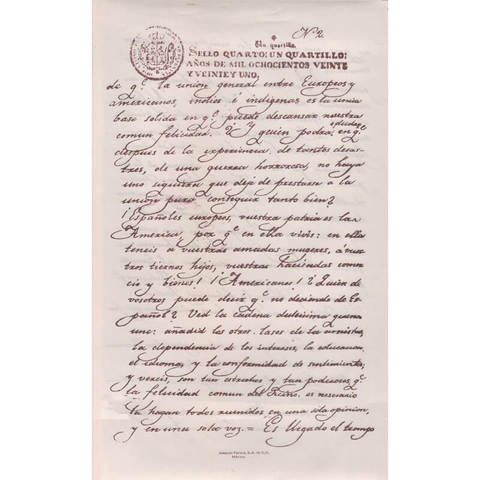 Nº 2.
Un quartillo
SELLO QUARTO: UN QUARTILLO:
AÑOS DE MIL OCHOCIENTOS VEINTE
Y VEINTE Y UNO,
de qᵉ la union general entre Europeos y
americanos, indios é indigenas es la unica
base solida en qᵉ puede descansar nuestra
comun felicidad. ¿Y quien podrá, en qᵉ
despues de la experiencia de tantos desas-
tres, de una guerra horrorosa, no haya
uno siquiera que deje de prestarse a la
union para conseguir tanto bien?
¡Españoles europeos, vuestra patria es la
America, por qᵉ en ella vivis: en ella
teneis a vuestras amadas mugeres, á vues-
tros tiernos hijos, vuestras haciendas comer-
cio y bienes! ¡Americanos! ¿Quien de
vosotros puede decir qᵉ no desciende de Es-
pañol? Ved la cadena dulcisima que nos
une: añadid los otros lasos de la amistad,
la dependencia de los intereses, la educacion,
el idioma, y la conformidad de sentimientos;
y vereis, son tan estrechos y tan poderosos qᵉ
la felicidad comun del Reino, es necesario
la hagan todos reunidos en una sola opinion,
y en una sola voz. = Es llegado el tiempo
México